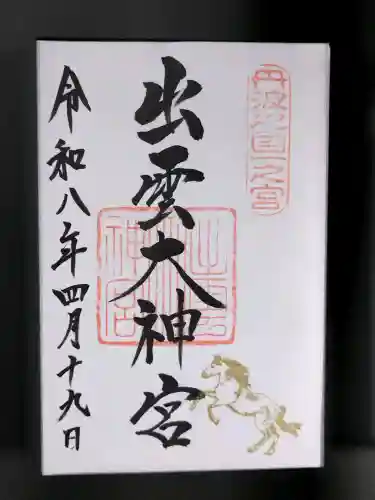 丹波國一之宮
出雲大神宮
令和八年四月十九日